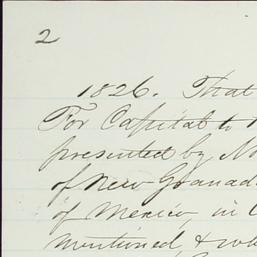 2
1826. That
For Capital to
presented by
of New Granad
of Mexico, in
mentioned, &